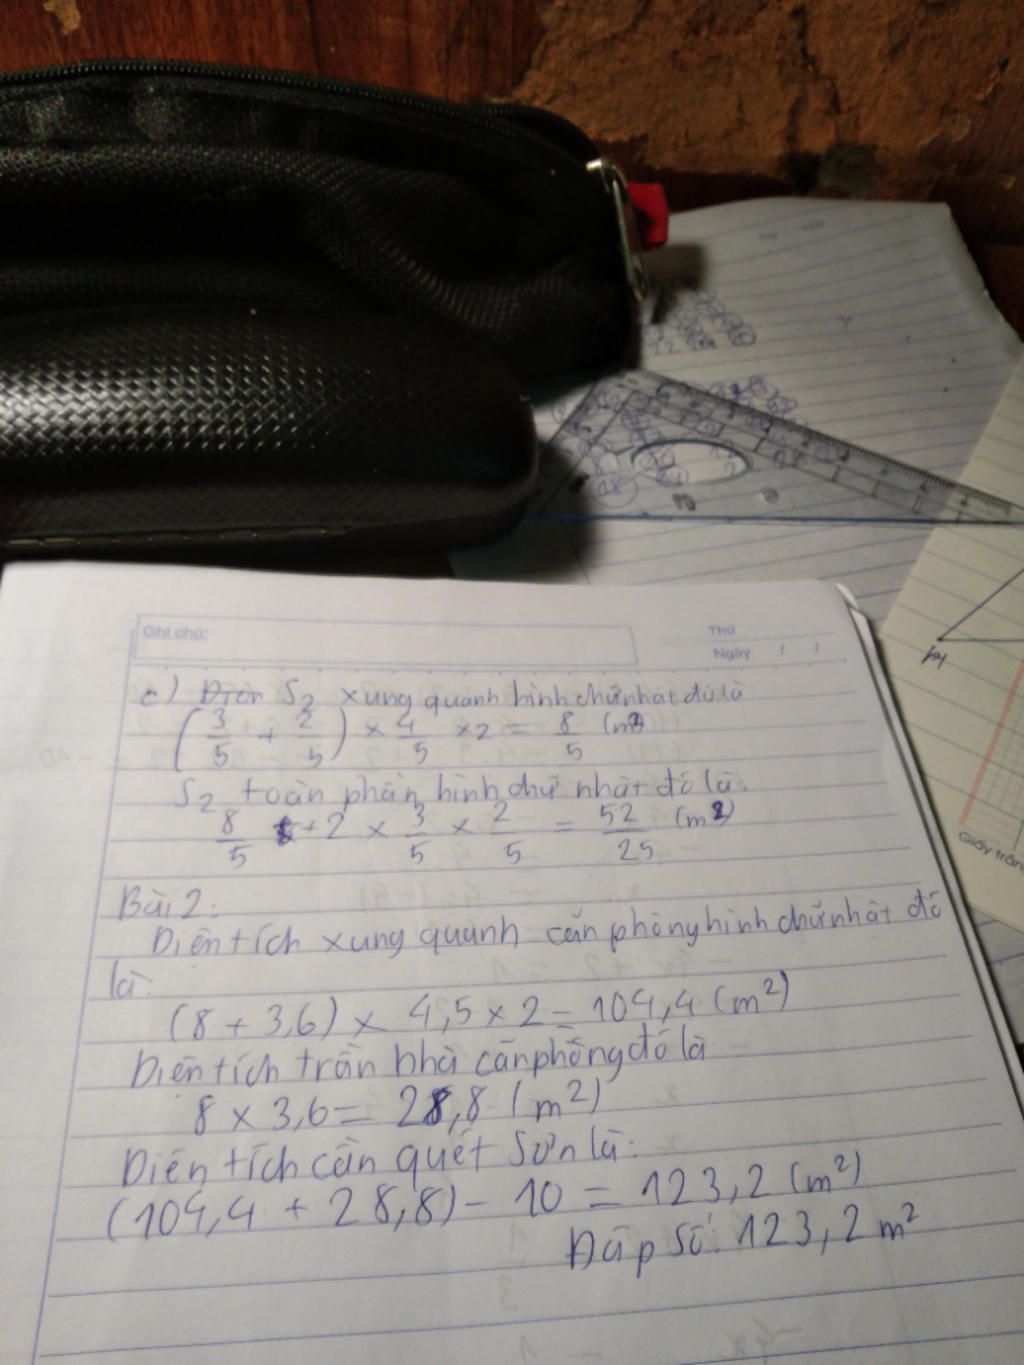 Ghi chú:
Thứ
Ngày / /
c) Diện S2 xung quanh hình chữ nhật đó là
(3/5 + 2/5) × 4/5 × 2 = 8/5 (m2)
S2 toàn phần hình chữ nhật đó là:
8/5 + 2 × 3/5 × 2/5 = 52/25 (m2)
Bài 2:
Diện tích xung quanh căn phòng hình chữ nhật đó
là:
(8 + 3,6) × 4,5 × 2 = 104,4 (m²)
Diện tích trần nhà căn phòng đó là
8 × 3,6 = 28,8 (m²)
Diện tích cần quét sơn là:
(104,4 + 28,8) - 10 = 123,2 (m²)
Đáp số: 123,2 m²
Giấy trắn